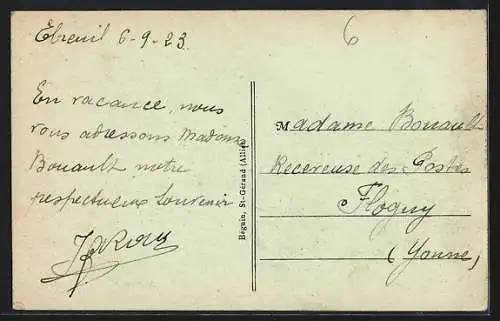 Ebreuil 6-9-23.
6
En vacance, nous
vous adressons Madame
Bouault notre
respectueux Souvenir
Beguin, St-Gérand (Allier)
Madame Bouault
Receveuse des Postes
à Flogny
(Yonne)